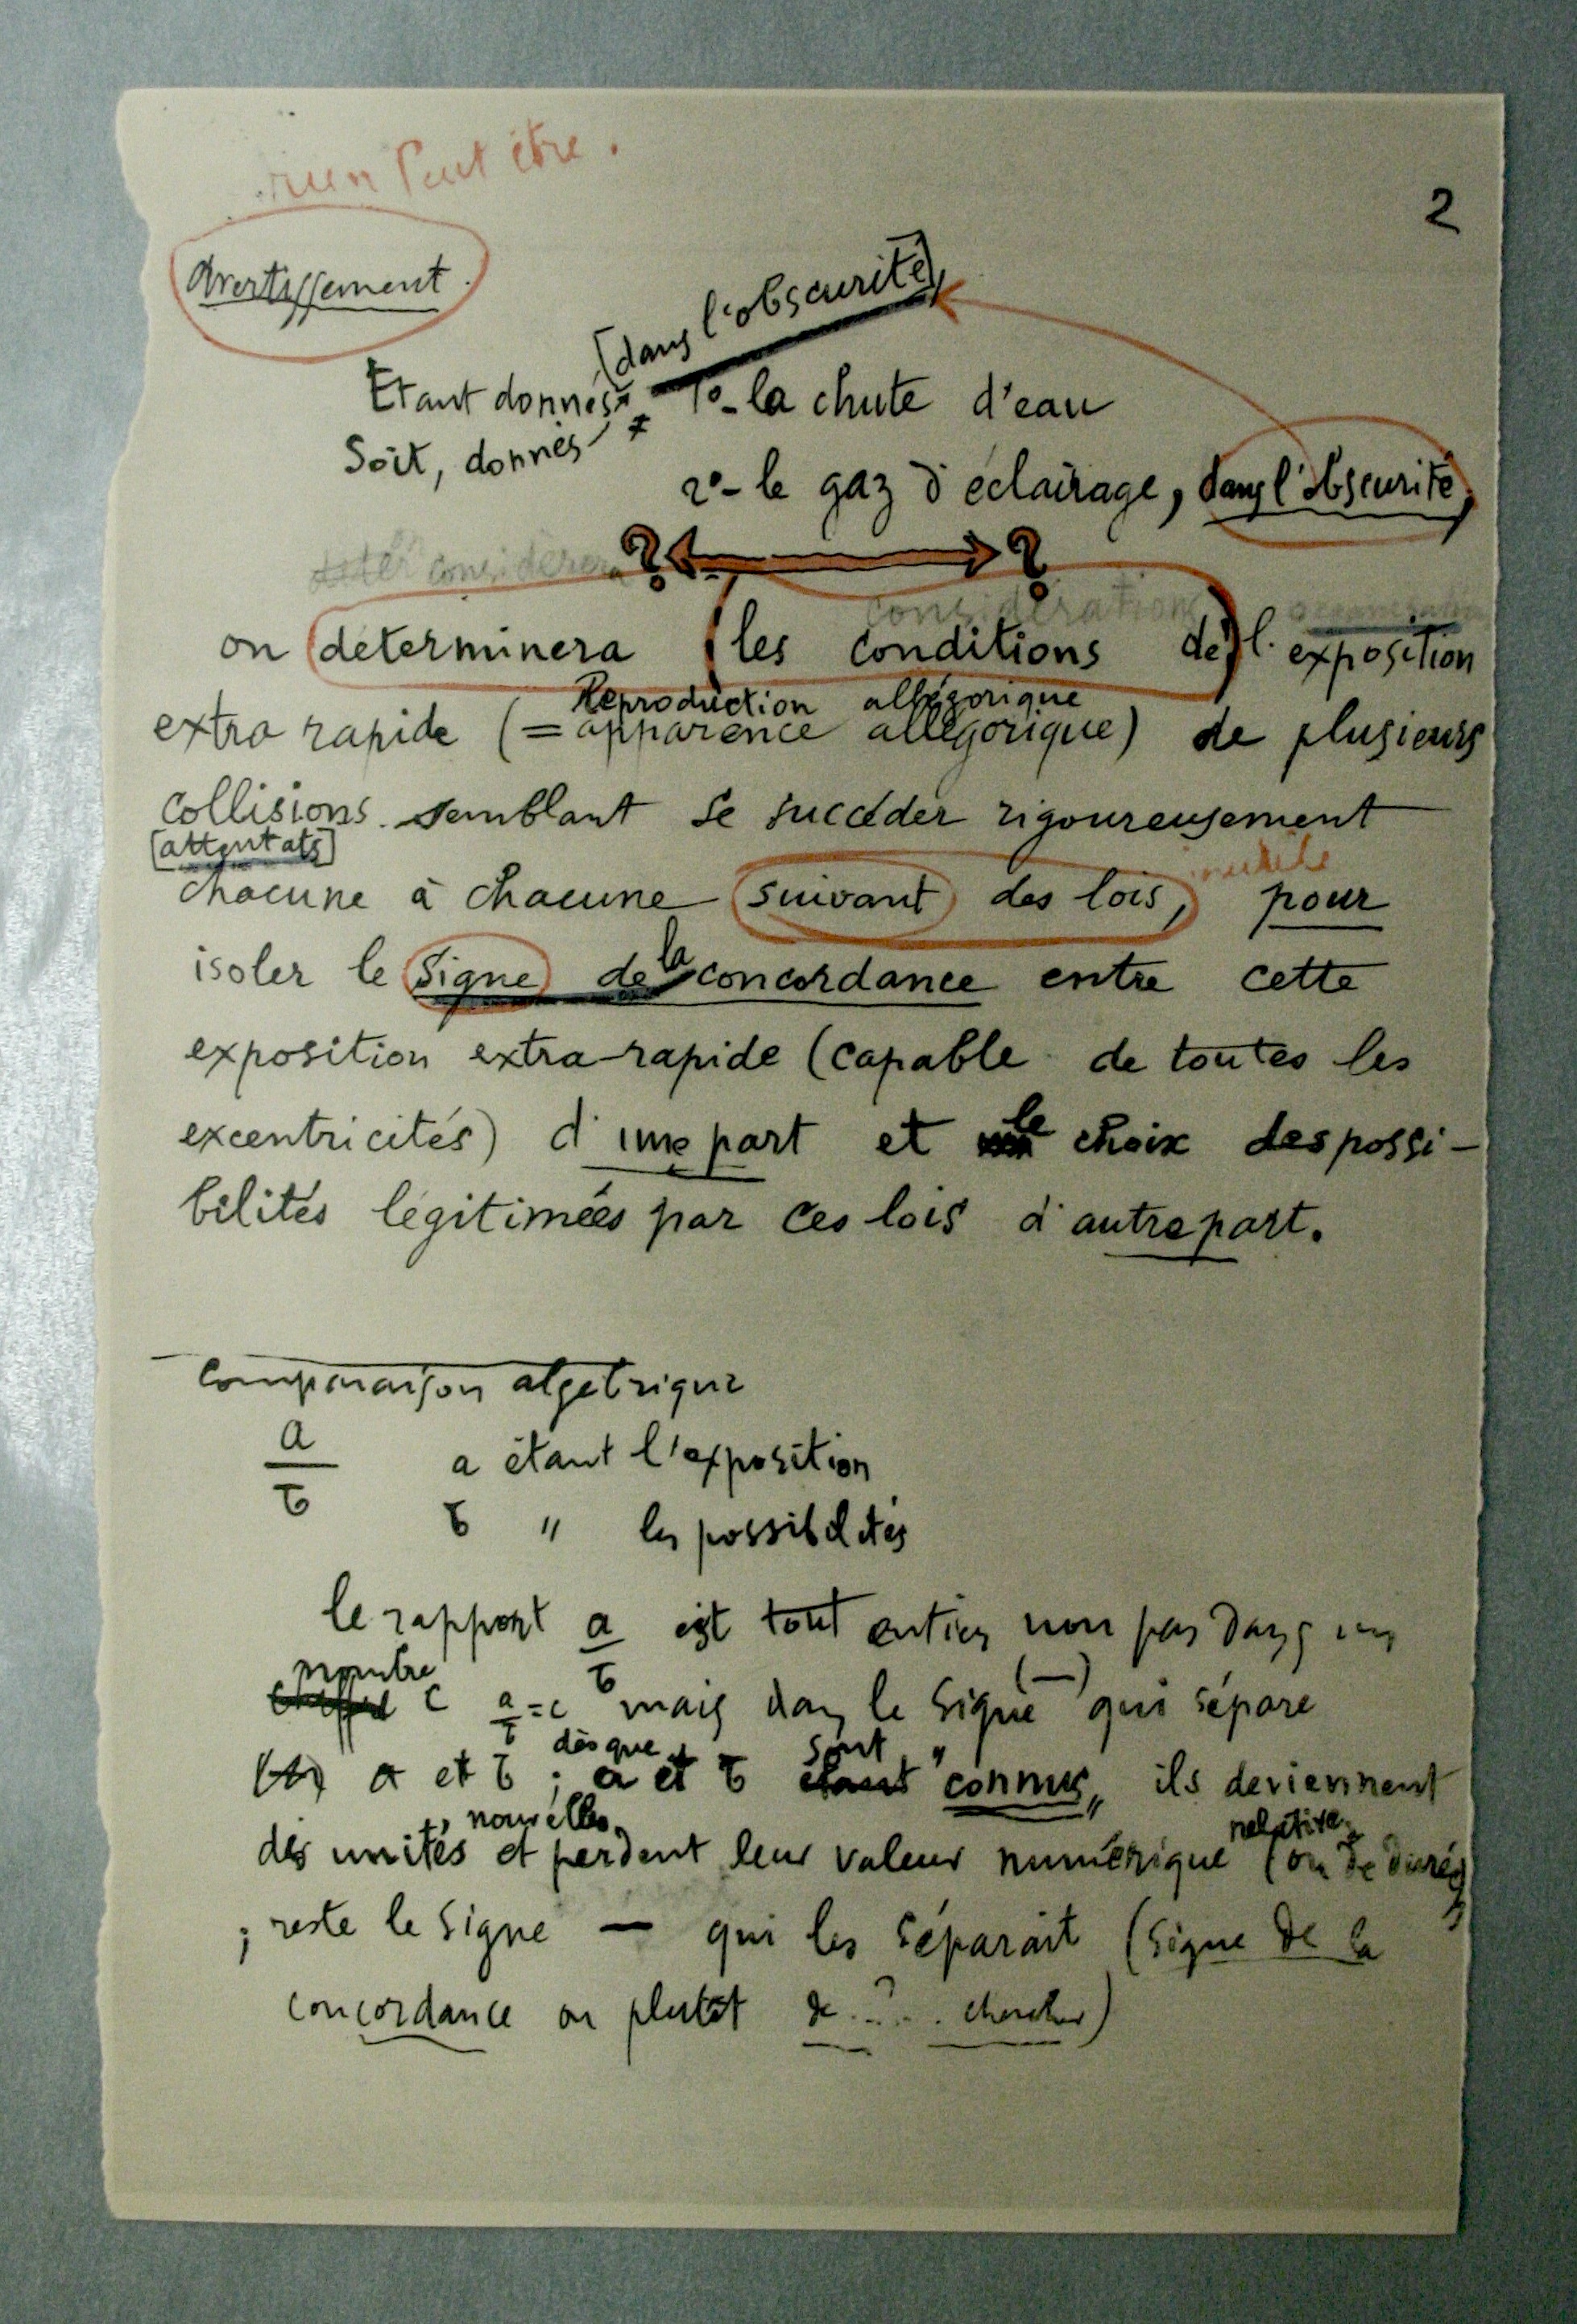 rien Peut être.
2
Avertissement.
[dans l'obscurité]
Etant donnés 1°- la chute d'eau
Soit, donnés
2°- le gaz d'éclairage, dans l'obscurité,
considérera ? ?
considérations
on déterminera (les conditions de) l'exposition
Reproduction allégorique
extra rapide (= apparence allégorique) de plusieurs
collisions semblant se succéder rigoureusement
[attentats]
chacune à chacune suivant des lois, pour
la
isoler le Signe de concordance entre cette
exposition extra-rapide (capable de toutes les
excentricités) d'une part et le choix des possi-
bilités légitimées par ces lois d'autre part.
Comparaison algébrique
a
b
a étant l'exposition
b " les possibilités
le rapport a/b est tout entier non pas dans un
nombre (—)
c a/b = c mais dans le signe qui sépare
dès que sont
a et b ; a et b étant "connus" ils deviennent
nouvelles relative
des unités et perdent leur valeur numérique (ou de durée)
; reste le signe — qui les séparait (signe de la
concordance ou plutôt de...?.... chercher)